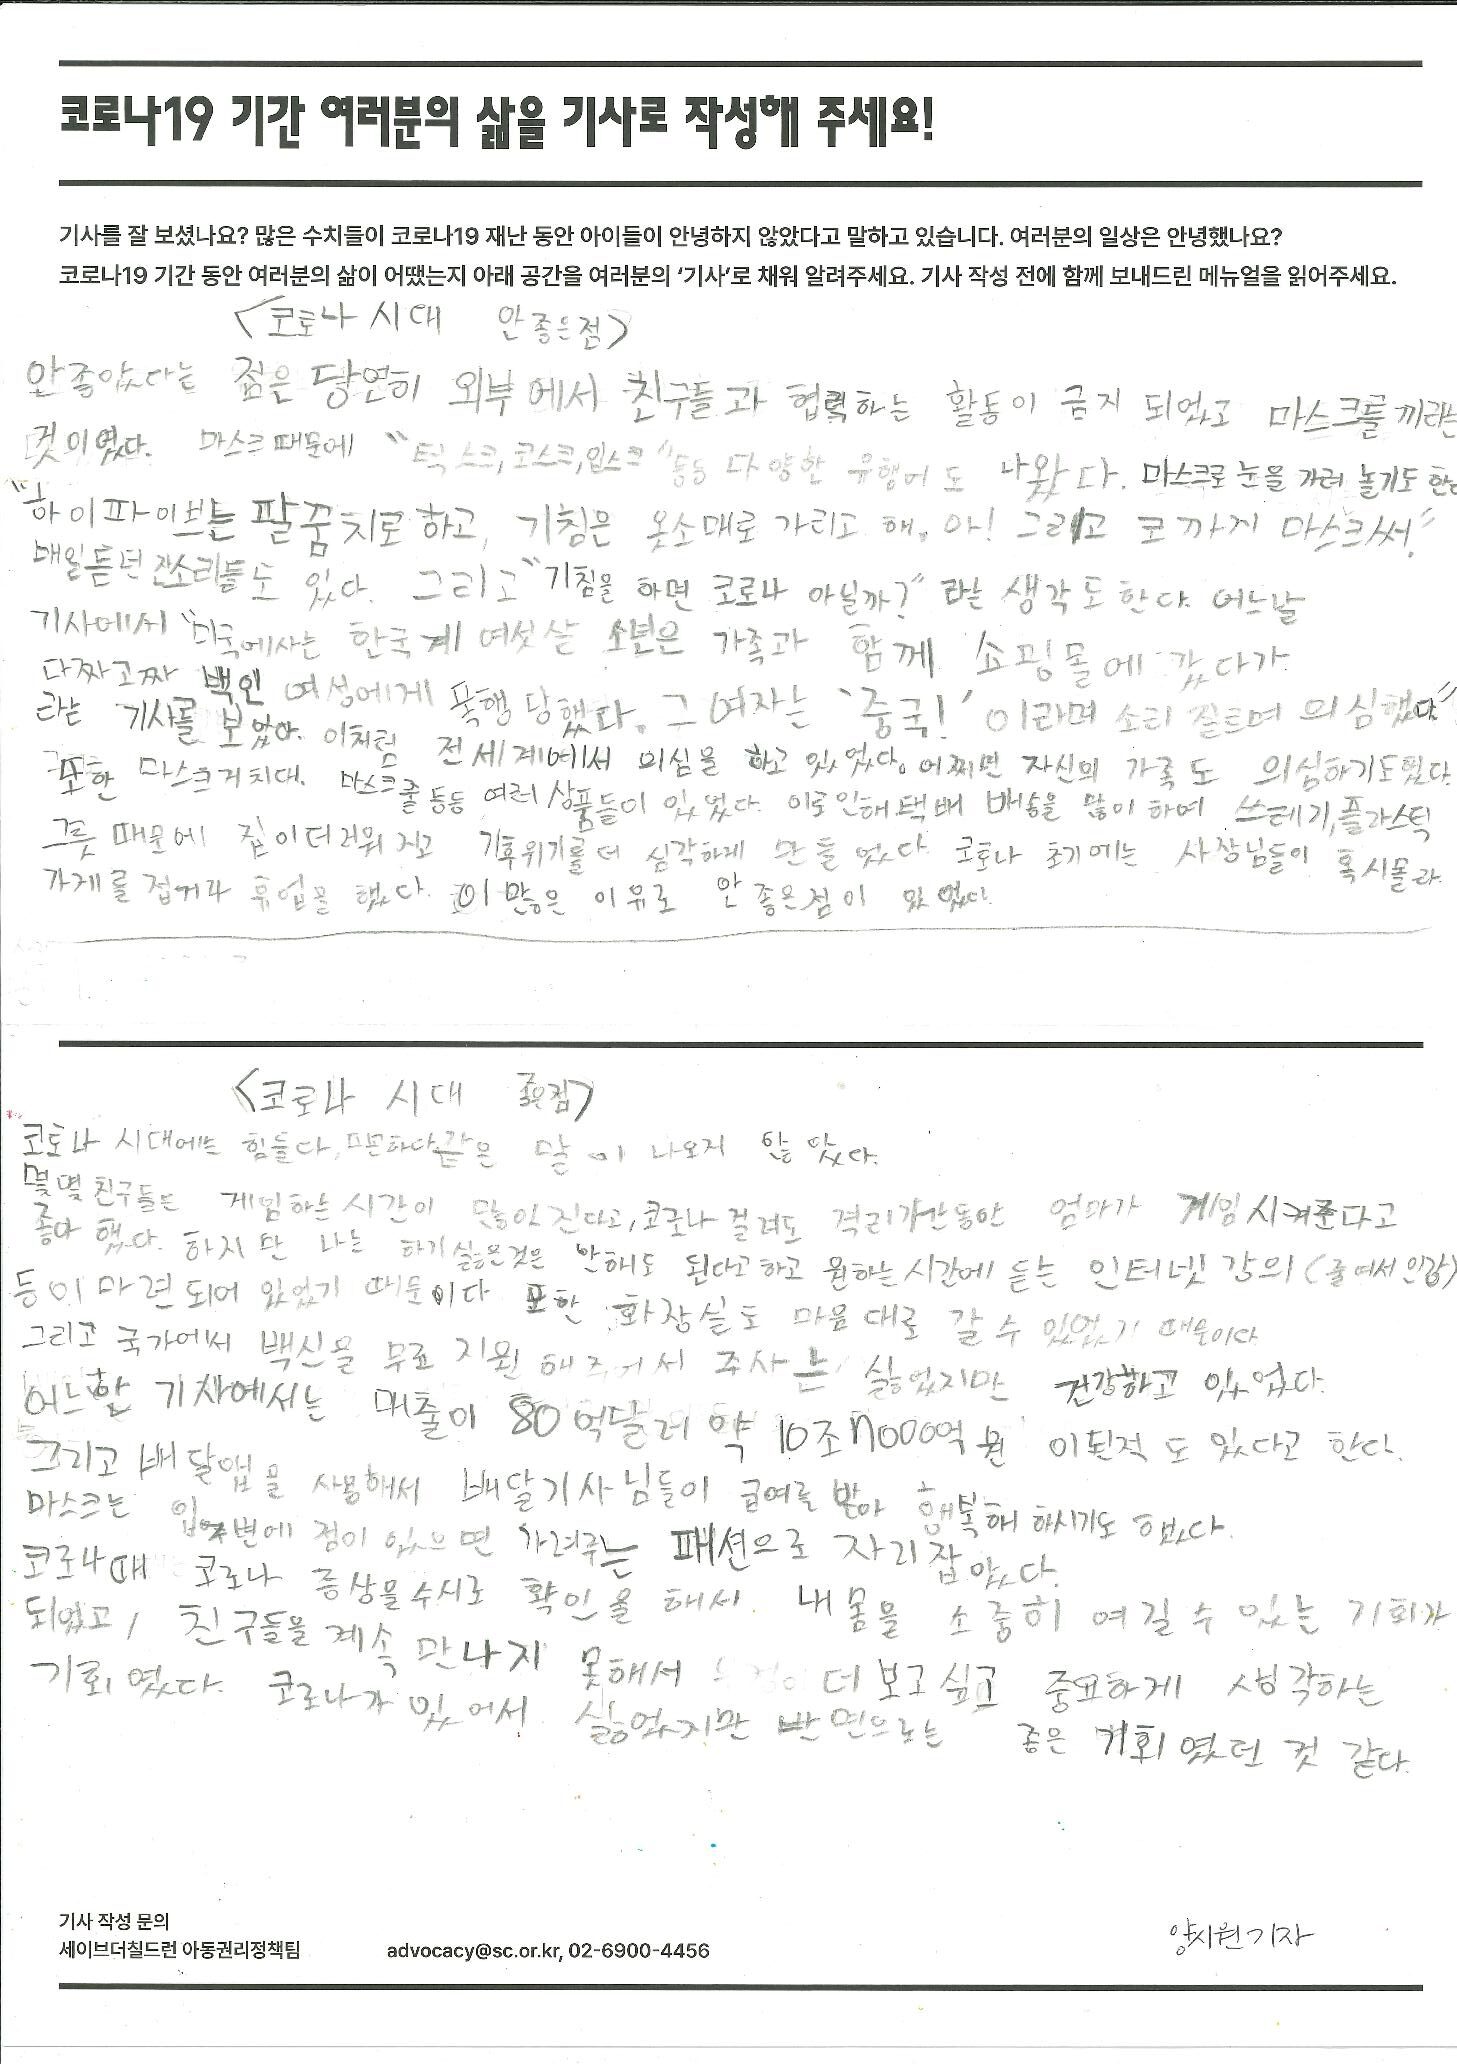 코로나19 기간 여러분의 삶을 기사로 작성해 주세요!
기사를 잘 보셨나요? 많은 수치들이 코로나19 재난 동안 아이들이 안녕하지 않았다고 말하고 있습니다. 여러분의 일상은 안녕했나요?
코로나19 기간 동안 여러분의 삶이 어땠는지 아래 공간을 여러분의 ‘기사’로 채워 알려주세요. 기사 작성 전에 함께 보내드린 메뉴얼을 읽어주세요.
<코로나 시대 안좋은점>
안좋았다는 점은 당연히 외부에서 친구들과 협력하는 활동이 금지 되었고 마스크를 끼라는
것이였다. 마스크 때문에 “턱스크, 코스크, 입스크” 등등 다양한 유행어도 나왔다. 마스크로 눈을 가려 놀기도 한다
“하이파이브는 팔꿈치로 하고, 기침은 옷소매로 가리고 해. 아! 그리고 코까지 마스크써.”
매일듣던 잔소리들도 있다. 그리고 “기침을 하면 코로나 아닐까?” 라는 생각도 한다. 어느날
기사에서 “미국에사는 한국계 여섯살 소년은 가족과 함께 쇼핑몰에 갔다가
다짜고짜 백인 여성에게 폭행 당했다. 그 여자는 ‘중국!’ 이라며 소리 질르며 의심했다”
라는 기사를 보았아. 이처럼 전세계에서 의심을 하고 있었다. 어쩌면 자신의 가족도 의심하기도했다.
또한 마스크거치대. 마스크줄 등등 여러 상품들이 있었다. 이로인해 택배 배송을 많이 하며 쓰레기, 플라스틱
그릇 때문에 집이더러워 지고 기후위기를 더 심각하게 만들었다. 코로나 초기에는 사장님들이 혹시몰라
가게를 접거나 휴업을 했다. 이 많은 이유로 안 좋은점이 있었다.
<코로나 시대 좋은점>
코로나 시대에는 힘들다, 피곤하다같은 말이 나오지 않았다.
몇몇 친구들은 게임하는 시간이 많아진다고, 코로나 걸려도 격리기간동안 엄마가 게임시켜준다고
좋아 했다. 하지만 나는 하기싫은것은 안해도 된다고하고 원하는시간에 듣는 인터넷 강의(줄여서 인강)
등이 마련되어 있었기 때문이다 또한 화장실도 마음대로 갈 수 있었기 때문이다
그리고 국가에서 백신을 무료 지원 해주셔서 주사는 싫었지만 건강하고 있었다.
어느한 기사에서는 매출이 80억달러 약 10조 원 이된적도 있다고 한다.
그리고 배달앱을 사용해서 배달기사님들이 급여를 받아 행복해 하시기도 했다.
마스크는 입주변에 점이 있으면 가려주는 패션으로 자리잡았다.
코로나때 코로나 증상을수시로 확인을 해서 내 몸을 소중히 여길 수 있는 기회가
되었고, 친구들을 계속 만나지 못해서 더 보고싶고 중요하게 생각하는
기회였다. 코로나가 있어서 싫었지만 반면으로는 좋은 기회였던 것 같다.
기사 작성 문의
세이브더칠드런 아동권리정책팀 advocacy@sc.or.kr, 02-6900-4456
양시원기자